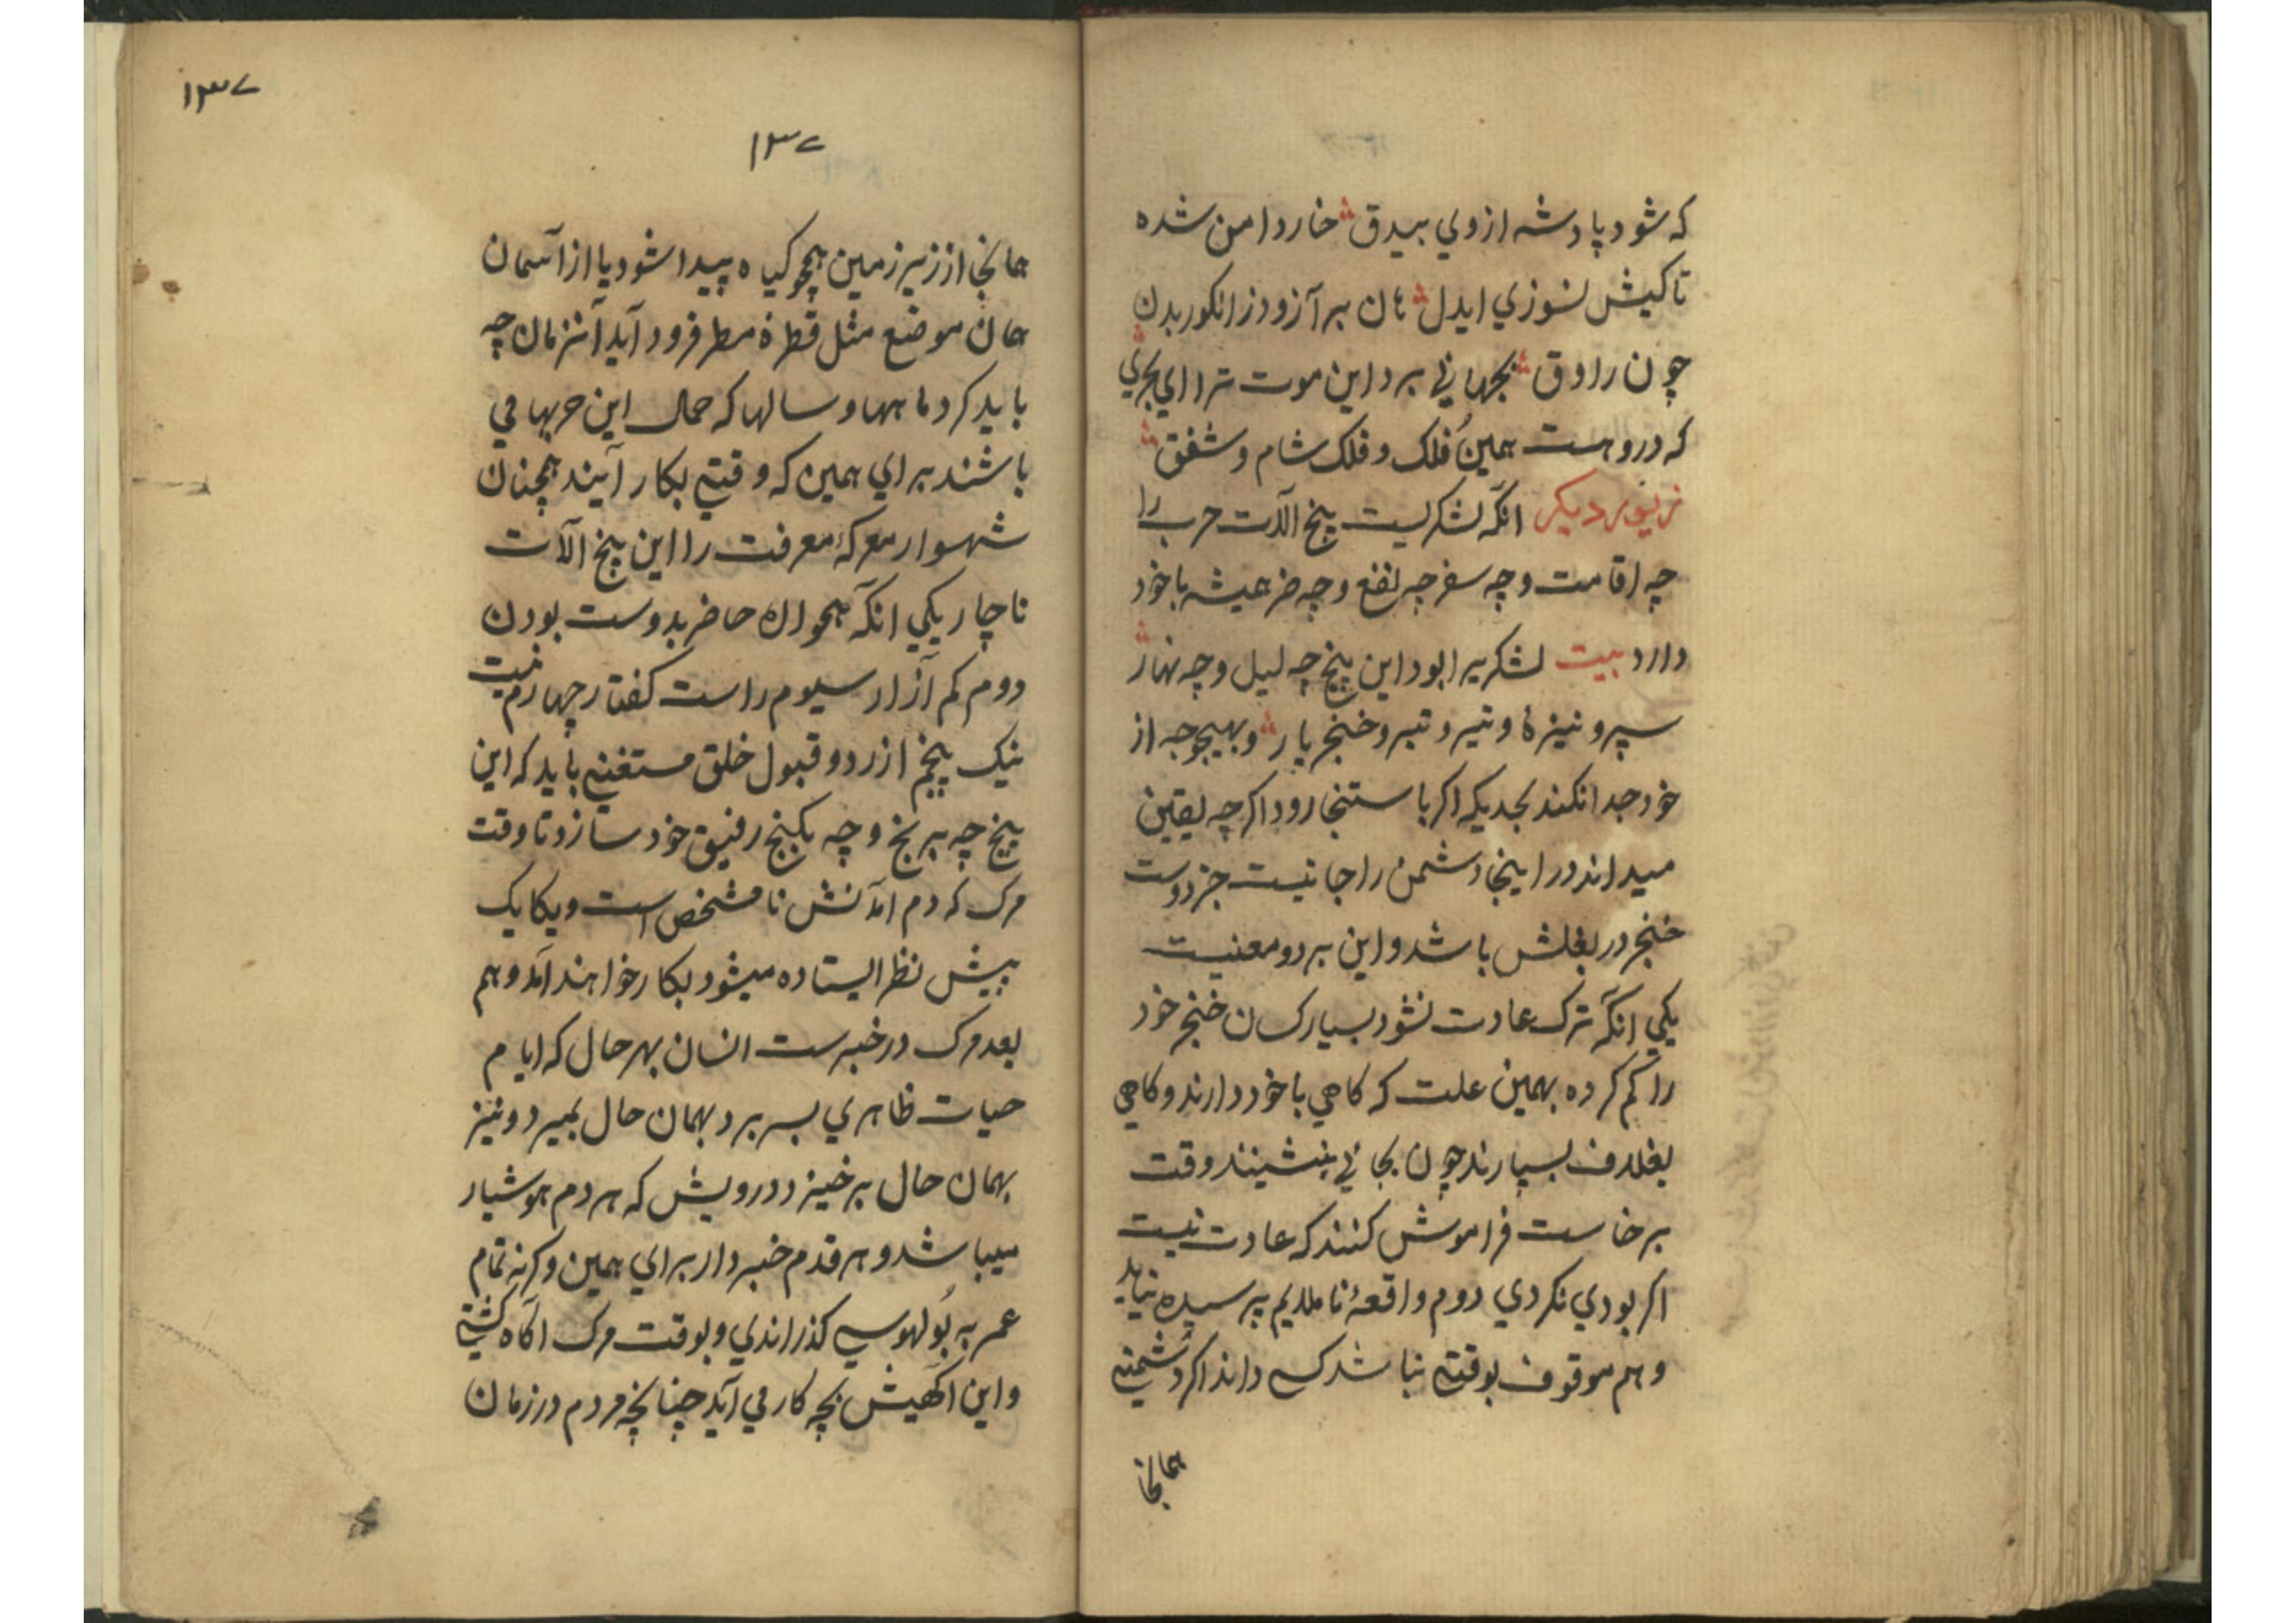 که شود پادشه ازوي بیدق خار دامن شده
تا کیش نسوزي ایدل هان برآ زود ز انکور بدن
چون راوق بجهاني برد این موت ترا اي بحري
که دروهست همین فُلک و فلک شام و شفق
زیور دیکر انکه لشکریست پنج آلات حرب را
چه اقامت و چه سفر چه نفع و چه ضر همیشه با خود
دارد بیت لشکریرا بود این پنج چه لیل و چه نهار
سپر و نیزهٔ و تیر و تبر و خنجر یار و بهیچوجه از
خود جدا نکند بحدیکه اکر باستنجا رود اکرچه یقین
میداند در اینجا دشمن را جا نیست جز دوست
خنجر در بغلش باشد و این بردو معنیست
یکي انکه ترک عادت نشود بسیار کسان خنجر خود
را کم کرده بهمین علت که کاهي با خود دارند و کاهي
بغلاف بسپارند چون بجائي بنشینند وقت
برخاست فراموش کنند که عادت نیست
اکر بودي نکردي دوم واقعهٔ ناملایم پرسیده نیاید
و هم موقوف بوقتي نباشد کسي داند اکر دشمني
همانجا
۱۳۷
۱۳۷
همانجا از زیر زمین همچو کیاه پیدا شود یا از آسمان
همان موضع مثل قطرهٔ مطر فرود آید آنزمان چه
باید کرد ماهها و سالها که حمال این حربها مي
باشند براي همین که وقتي بکار آیند همچنان
شهسوار معرکهٔ معرفت را این پنج آلات
ناچار یکي انکه همواره حاضر بدوست بودن
دوم کم آزار سیوم راست کفتار چهارم نیت
نیک پنجم از رد و قبول خلق مستغني باید که این
پنج چه برنج و چه بکنج رفیق خود سازد تا وقت
مرک که دم آمدنش نامشخص است و یکایک
پیش نظر ایستاده میشود بکار خواهند آمد و هم
بعد مرک در خبرست انسان بهر حال که ایام
حیات ظاهري بسر برد بهمان حال بمیرد و نیز
بهمان حال برخیزد درویش که هر دم هوشیار
میباشد و هر قدم خبردار براي همین وکرنه تمام
عمر به بُولهوسي کذراندي و بوقت مرک آکاه کشتي
و این آکهیش بچه کار مي آید چنانچه مردم در زمان